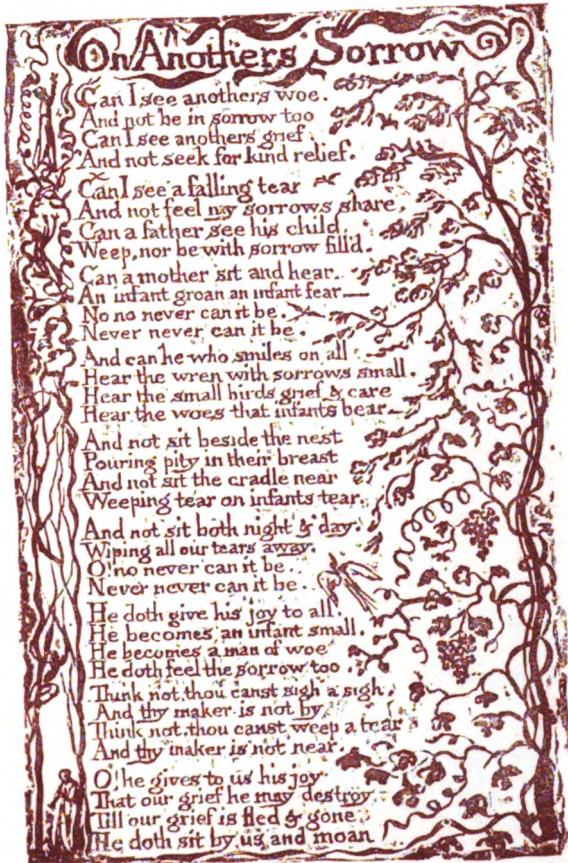 On Anothers Sorrow
Can I see anothers woe.
And not be in sorrow too
Can I see anothers grief.
And not seek for kind relief.
Can I see a falling tear
And not feel my sorrows share
Can a father see his child
Weep, nor be with sorrow fill'd.
Can a mother sit and hear.
An infant groan an infant fear—
No no never can it be.
Never never can it be.
And can he who smiles on all
Hear the wren with sorrows small.
Hear the small birds grief & care
Hear the woes that infants bear—
And not sit beside the nest
Pouring pity in their breast
And not sit the cradle near
Weeping tear on infants tear.
And not sit both night & day.
Wiping all our tears away.
O! no never can it be.
Never never can it be.
He doth give his joy to all.
He becomes an infant small.
He becomes a man of woe
He doth feel the sorrow too.
Think not, thou canst sigh a sigh.
And thy maker is not by
Think not, thou canst weep a tear
And thy maker is not near.
O! he gives to us his joy.
That our grief he may destroy
Till our grief is fled & gone
He doth sit by us and moan